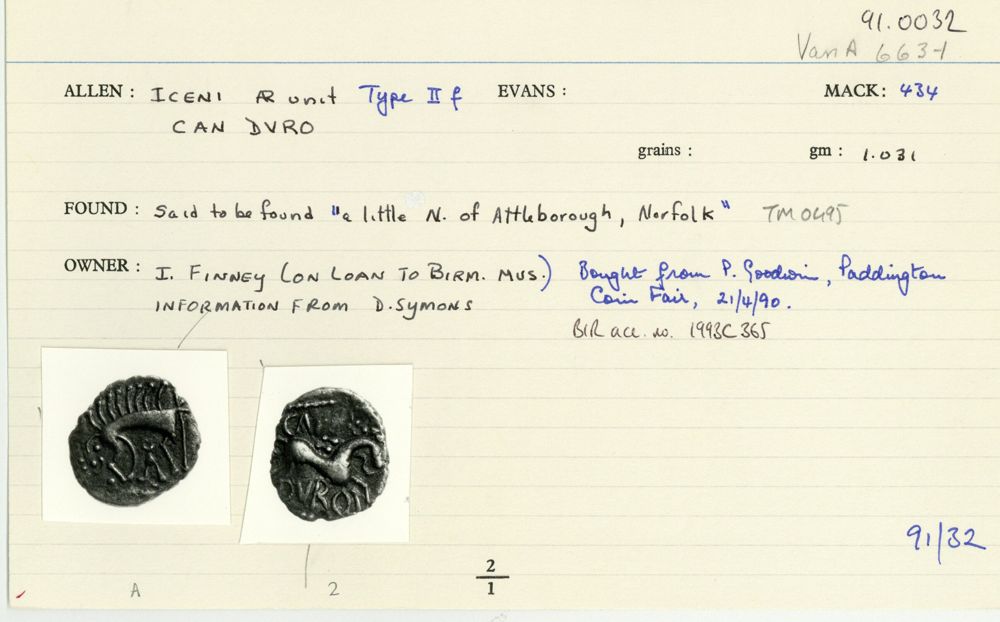 91.0032
VanA 663-1
ALLEN : ICENI AR unit Type II f EVANS : MACK: 434
CAN DVRO
grains : gm : 1.031
FOUND : Said to be found "a little N. of Attleborough, Norfolk" TM0495
OWNER : I. FINNEY (ON LOAN TO BIRM. MUS.) Bought from P. Goodwin, Paddington
INFORMATION FROM D. SYMONS Coin Fair, 21/4/90.
BIR acc. no. 1993C365
CA
DVRON
91/32
A 2 2/1